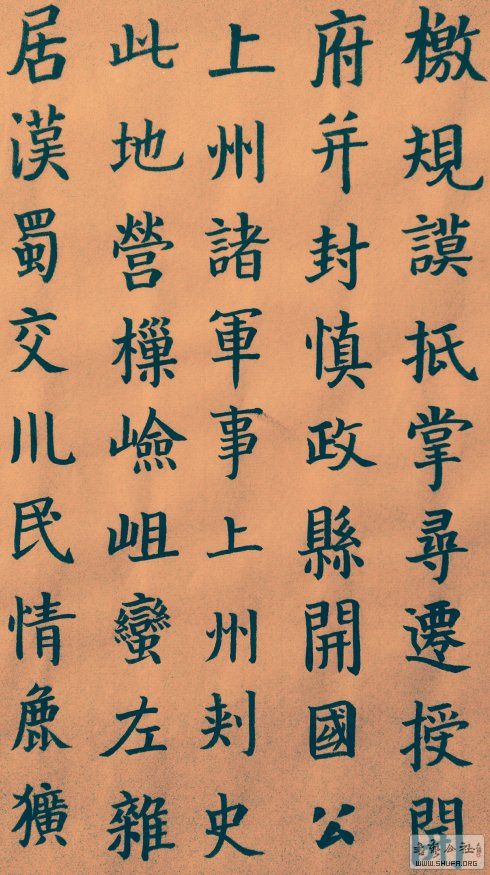 檄規謨抵掌尋遷授
府并封慎政縣開國公
上州諸軍事上州刺史
此地營樔嶮岨蠻左雜
居漢蜀交川民情麁獷
WWW.SHUFA.ORG